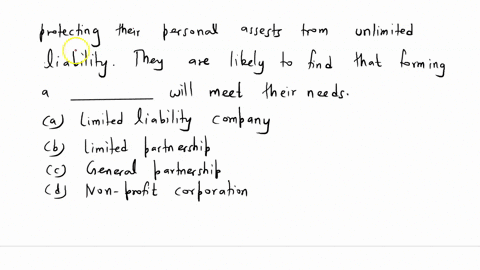 protecting their personal assests from unlimited
liability. They are likely to find that forming
a ________ will meet their needs.
(a) Limited liability company
(b) Limited partnership
(c) General partnership
(d) Non-profit corporation